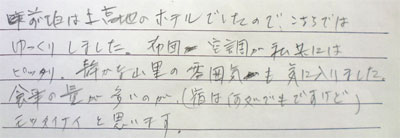 前泊は上高地のホテルでしたので、こちらでは
ゆっくりしました。布団・空調が私共には
ピッタリ。静かな山里の雰囲気も気に入りました。
食事の量が多いのが、(宿は何処でもですけど)
モッタイナイと思います。